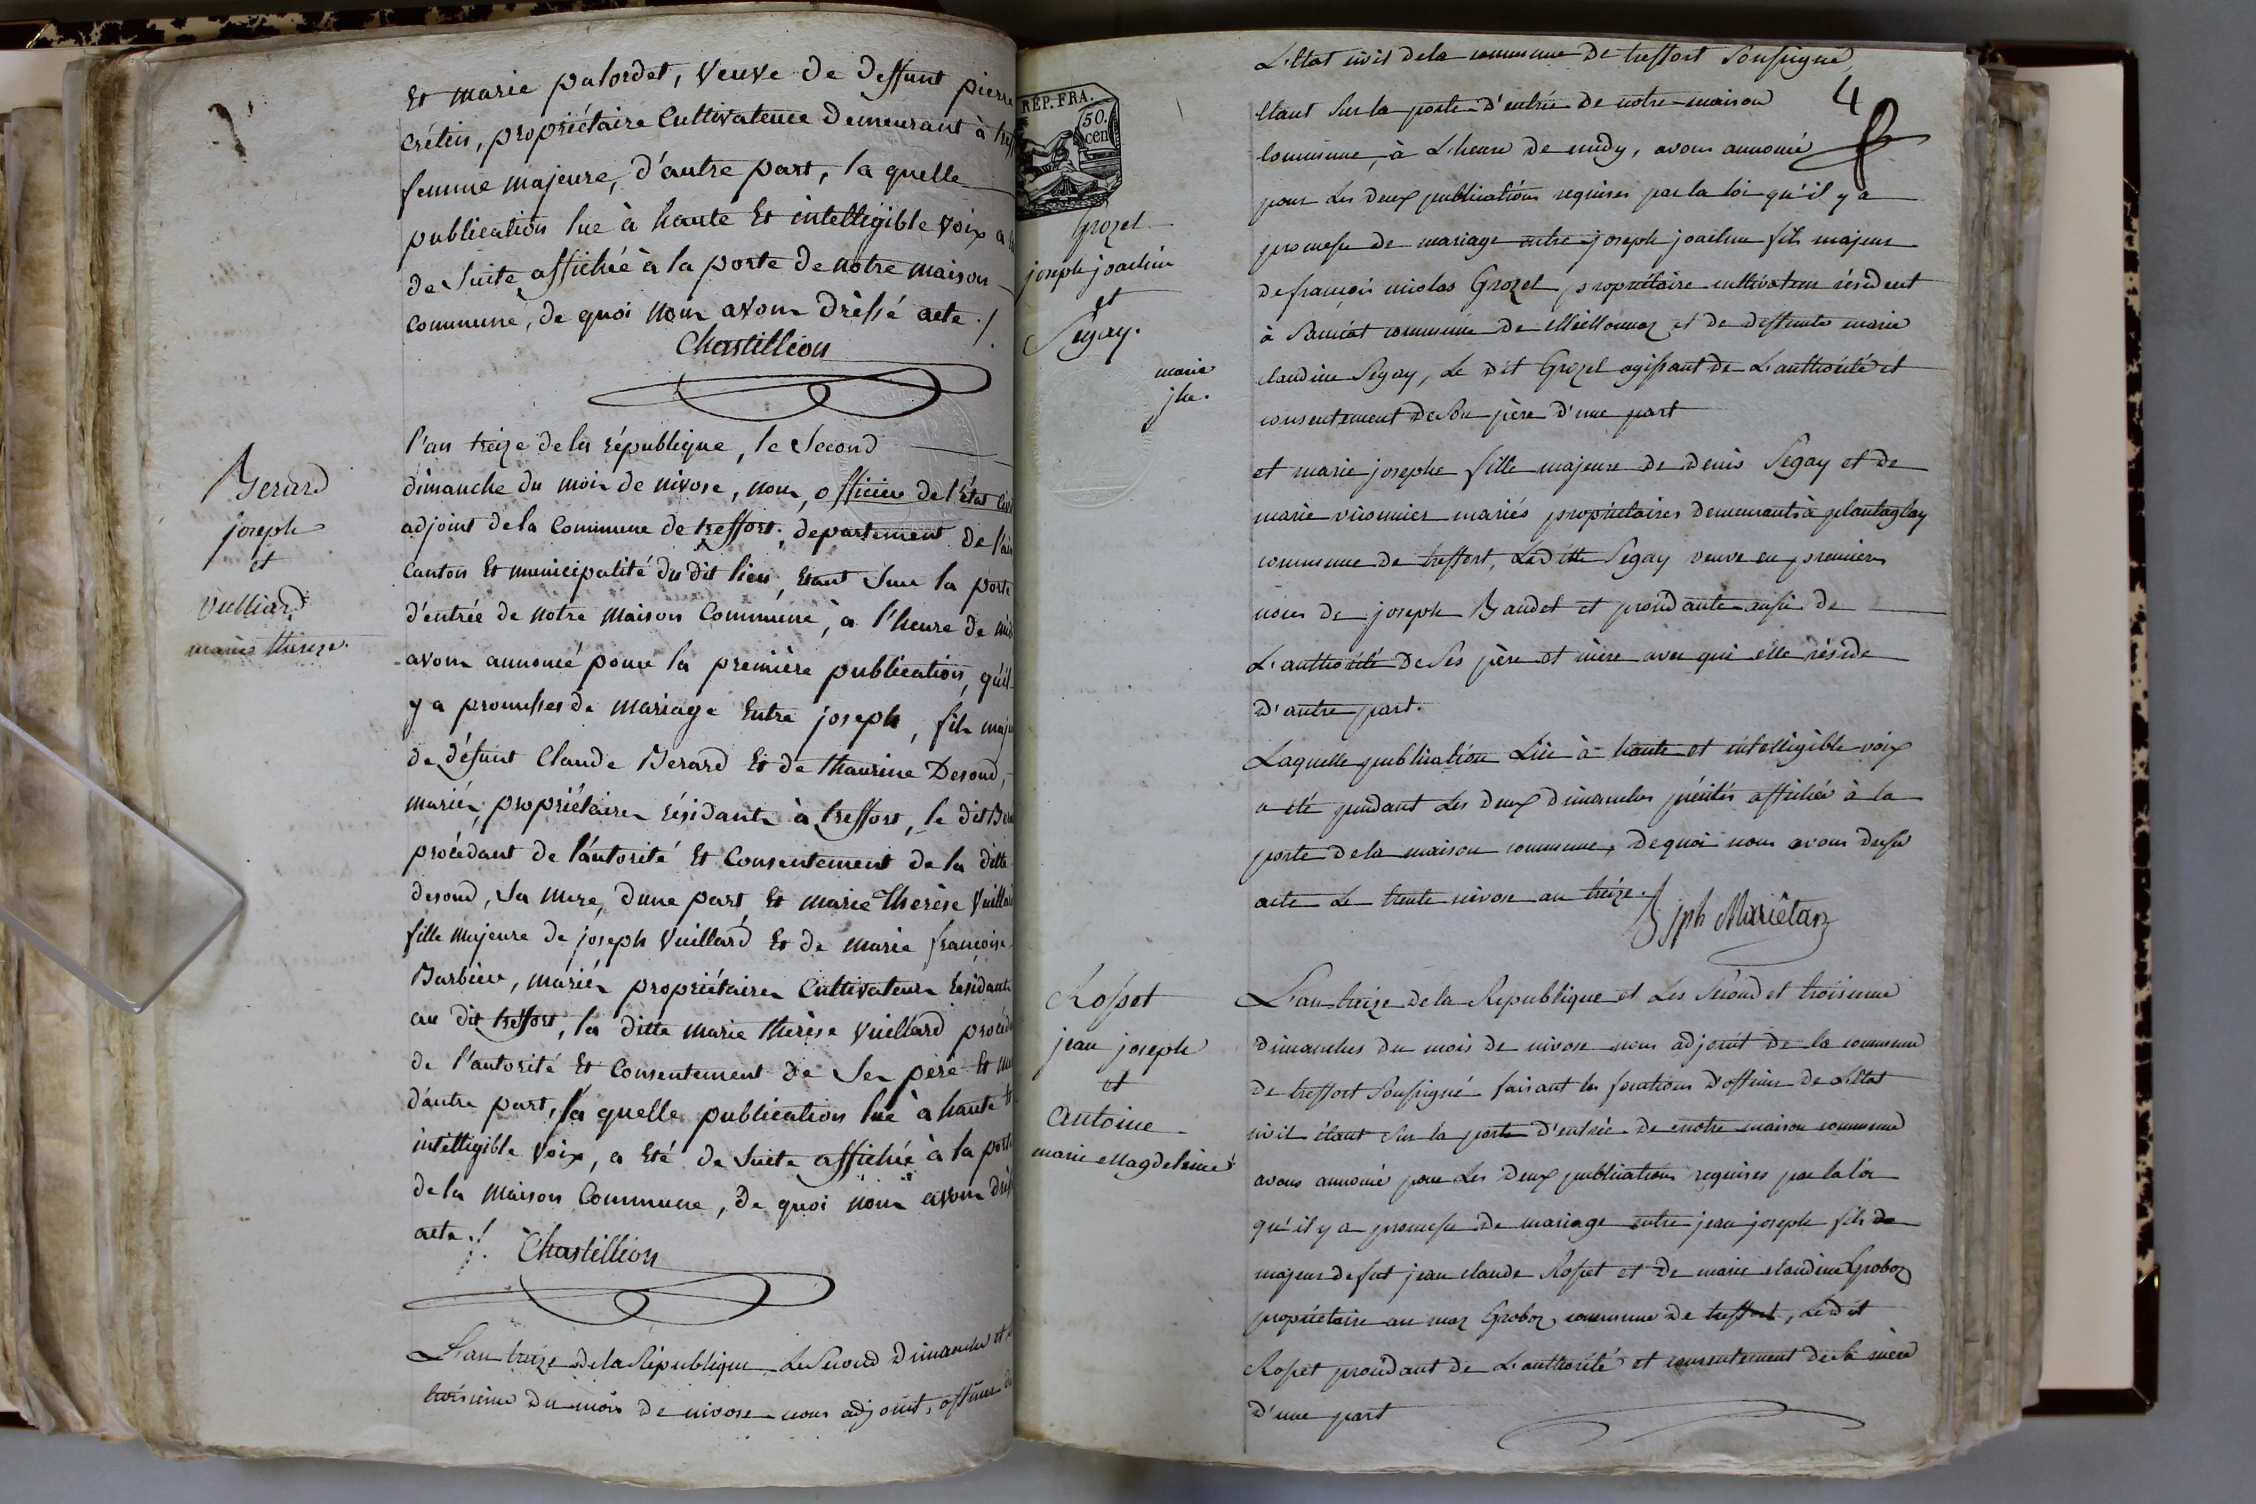 Et marie palordet, veuve de deffunt pierre
crétin, propriétaire Cultivateuce demeurant à
femme majeure, d'autre part, la quelle
publication lue à haute Et intelligible voix a
de Suite affichée à la porte de notre maison
commune, de quoi nous avons dressé acte ./
Chastillion
Berard
joseph
et
vulliard
marie thereze.
l'an treize de la république, le Second
dimanche du mois de nivose, nous, officier de l'état
adjoint de la Commune de treffort, departement de l'ain
Canton Et municipalité du dit lieu Etant Sur la porte
d'entrée de notre maison Commune, à l'heure de
avons annoncé pour la première publication, qu'il
y a promesses de mariage Entre joseph, fils
de défunt Claude Berard Et de thaurine Desond,
mariés, propriétaires résidants à treffort, le dit
procédant de l'autorité Et Consentement de la ditte
desond, Sa mere, d'une part Et marie Therèse
fille majeure de joseph Vuillard Et de marie françoise
Barbier, mariés propriétaires Cultivateurs résidants
au dit treffort, la ditte marie therèse Vuillard
de l'autorité Et Consentement de Ses père Et
d'autre part, la quelle publication lue à haute
intelligible voix, a Eté de Suite affichée à la porte
de la maison Commune, de quoi nous avons
acte ./.
Chastillion
L'an treize de la République Le Second Dimanche et
troisième du mois de nivose nous adjoint,
RÉP. FRA.
50.
cen
4
Grozel
joseph joachim
et
Segay.
marie
jhe.
L'Etat civil de la commune de treffort Soussigné
Etant Sur la porte d'entrée de notre maison
commune, à L'heure de midy, avons annoncé
pour les deux publications requises par la loi qu'il y a
promesse de mariage entre joseph joachim fils majeur
de françois nicolas Grozel propriétaire cultivateur résident
à Sanciat commune de Meillonnaz et de deffunte marie
claudine Segay, Le dit Grozel agissant de L'authorité et
consentement de Son père d'une part
et marie josephe fille majeure de denis Segay et de
marie vicomier mariés propriétaires demeurants à plantaglay
commune de treffort, Laditte Segay veuve en premiers
noces de joseph Baudet et procédante aussi de
L'authorité de Ses père et mère avec qui elle réside
D'autre part.
Laquelle publication Lüe à haute et intelligible voix
a été pendant Les deux dimanches précités affichée à la
porte de la maison commune, dequoi nous avons dressé
acte Le trente nivose an treize.
Jph Mariêtan
Rosset
jean joseph
et
Antoine
marie Magdeleine
L'an treize de la République et Les Second et troisieme
Dimanches du mois de nivose nous adjoint de la commune
de treffort Soussigné faisant les fonctions d'officier de L'Etat
civil étant Sur la porte d'entrée de notre maison commune
avons annoncé pour Les Deux publications requises par la loi
qu'il y a promesse de mariage entre jean joseph fils de
majeur de fut jean claude Rosset et De marie claudine Groboz
propriétaire au maz Groboz commune de treffort, Ledit
Rosset procédant de L'authorité et consentement de Sa mère
D'une part